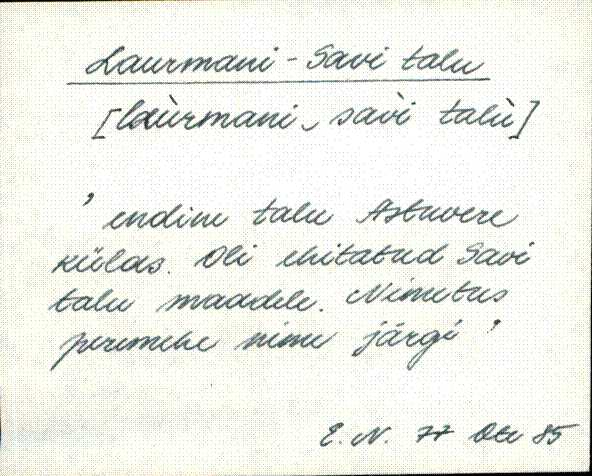 Laurmani-Savi talu
[laùrmani‿savi talù]
' endine talu Astuvere
külas. Oli ehitatud Savi
talu maadele. Nimetus
peremehe nime järgi '
E. N. 77 Ote 85